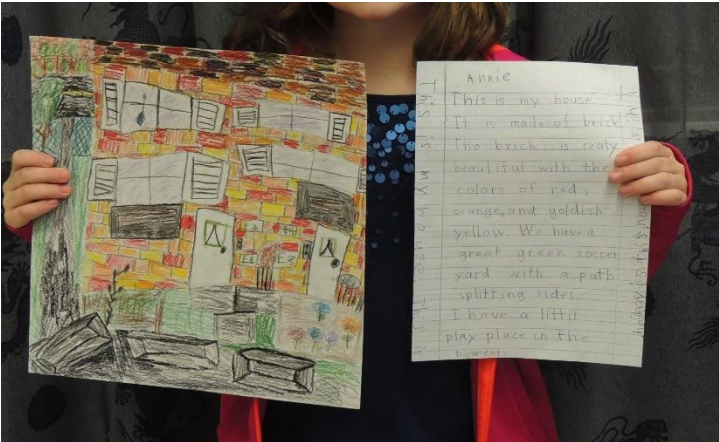 Annie
This is my house.
It is made of brick
The brick is reaty
beautiful with the
colors of red,
orange, and goldish
yellow. We have a
great green soccer
yard with a path
splitting sides.
I have a littil
play place in the
bacment.
This is my house